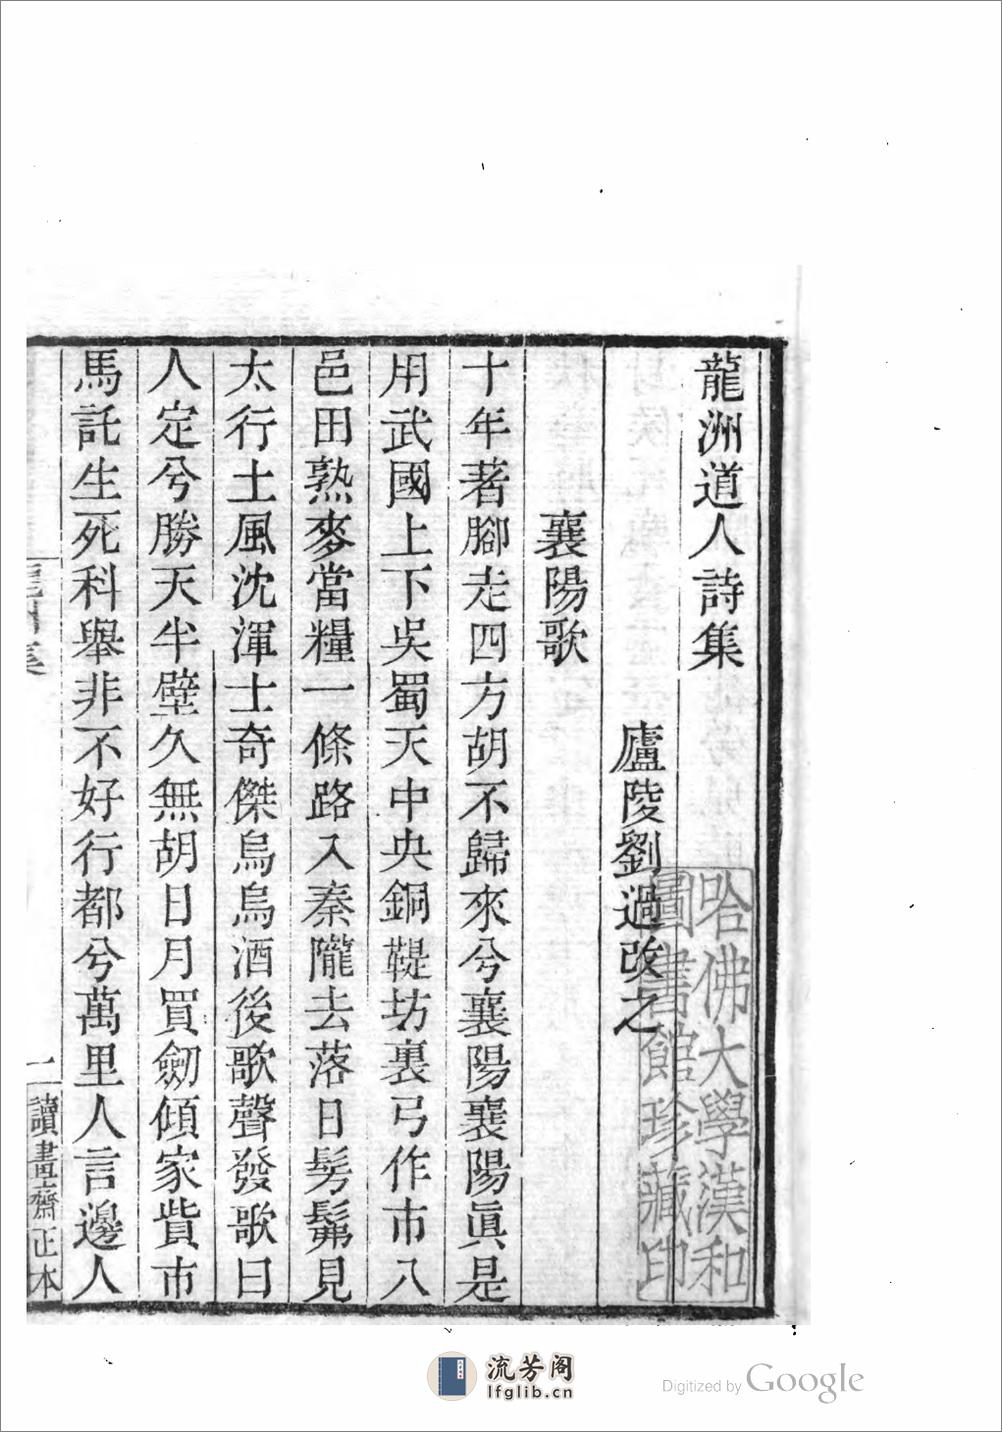 龍洲道人詩集
廬陵劉過改之
襄陽歌
十年著腳走四方胡不歸來兮襄陽襄陽眞是
用武國上下吳蜀天中央銅鞮坊裏弓作市八
邑田熟麥當糧一條路入秦隴去落日髣髴見
太行土風沈渾士奇傑烏烏酒後歌聲發歌曰
人定兮勝天半壁久無胡日月買劒傾家貲市
馬託生死科舉非不好行都兮萬里人言邊人
二 讀畫齋正本
哈佛大學漢和
圖書館珍藏印
流芳阁
lfglib.cn
Digitized by Google